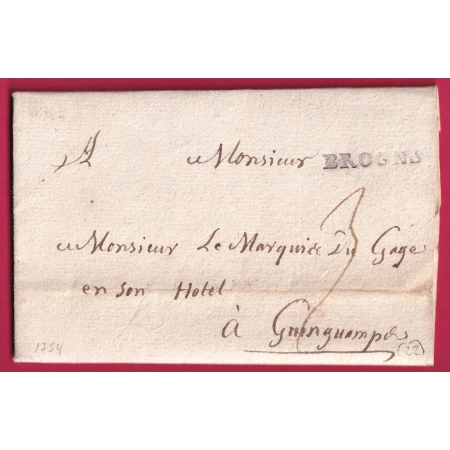 A Monsieur BROONS
Monsieur Le Marquis Du Gage
en son Hotel
3
à Guinguamp
1754 (22)